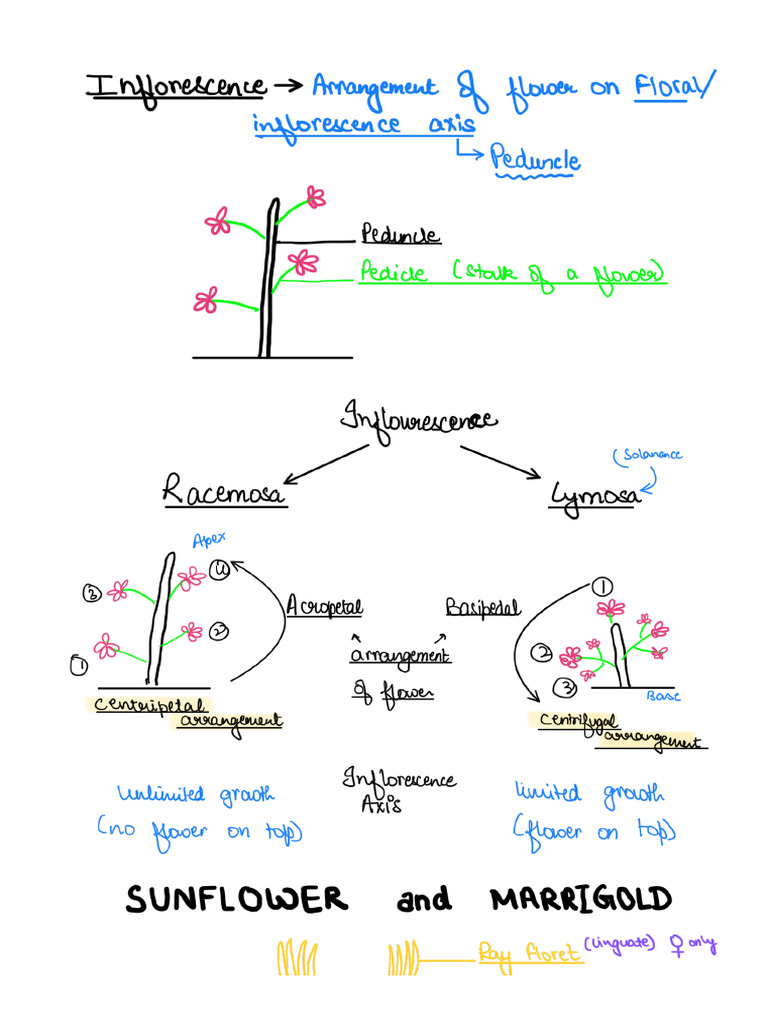 Inflorescence → Arrangement of flower on Floral/
inflorescence axis
↳ Peduncle
Peduncle
Pedicle (stalk of a flower)
Inflourescence
(Solanance
Racemosa
Cymosa
Apex
③ ④
①
Acropetal
Basipetal
① ②
②
arrangement
③
of flower
Base
centripetal
arrangement
centrifugal
arrangement
Inflorescence
Axis
Unlimited growth
limited growth
(no flower on top)
(flower on top)
SUNFLOWER and MARRIGOLD
Ray floret (linguate) ♀ only